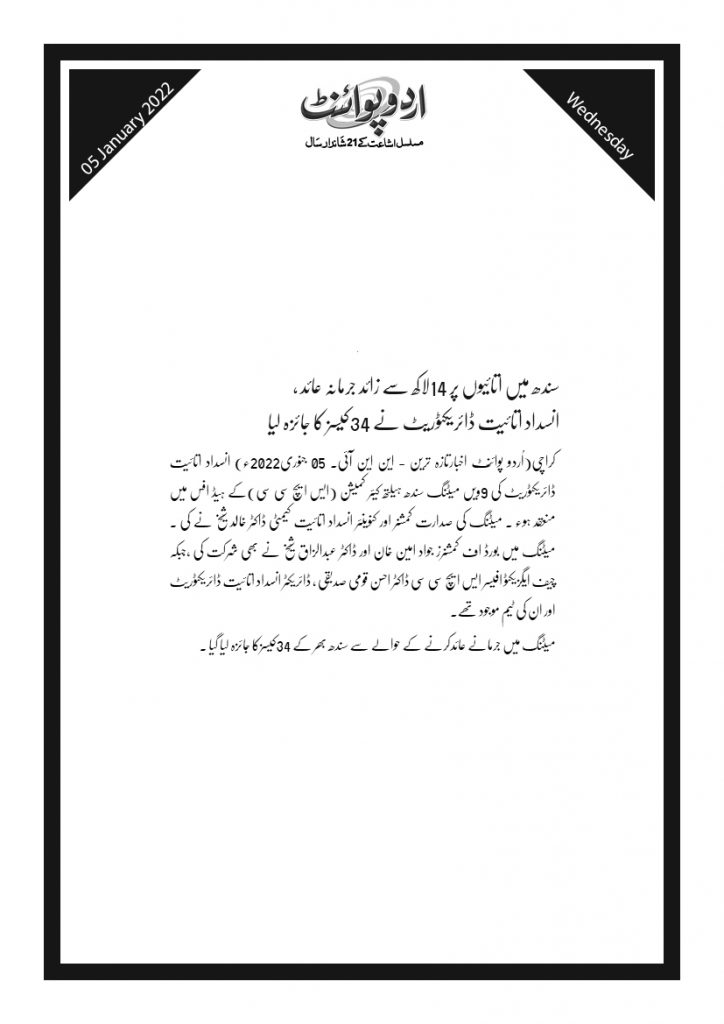 05 January 2022
Wednesday
اردو پوائنٹ
مسلسل اشاعت کے 21 شاندار سال
سندھ میں اتائیوں پر 14لاکھ سے زائد جرمانہ عائد ،
انسداد اتائیت ڈائریکٹوریٹ نے 34کیسز کا جائزہ لیا
کراچی(اُردو پوائنٹ اخبارتازہ ترین - این این آئی۔ 05 جنوری2022ء) انسداد اتائیت
ڈائریکٹوریٹ کی 9ویں میٹنگ سندھ ہیلتھ کیئر کمیشن (ایس ایچ سی سی)کے ہیڈ افس میں
منعقد ہوء ۔ میٹنگ کی صدارت کمشنر اور کنوینئر انسداد اتائیت کمیٹی ڈاکٹر خالد شیخ نے کی ۔
میٹنگ میں بورڈ اف کمشنرز جواد امین خان اور ڈاکٹر عبدالزاق شیخ نے بھی شرکت کی ،جبکہ
چیف ایگزیکٹوافیسر ایس ایچ سی سی ڈاکٹر احسن قومی صدیقی ، ڈائریکٹر انسداد اتائیت ڈائریکٹوریٹ
اور ان کی ٹیم موجود تھے۔
میٹنگ میں جرمانے عائدکرنے کے حوالے سے سندھ بھر کے 34کیسز کا جائزہ لیا گیا ۔